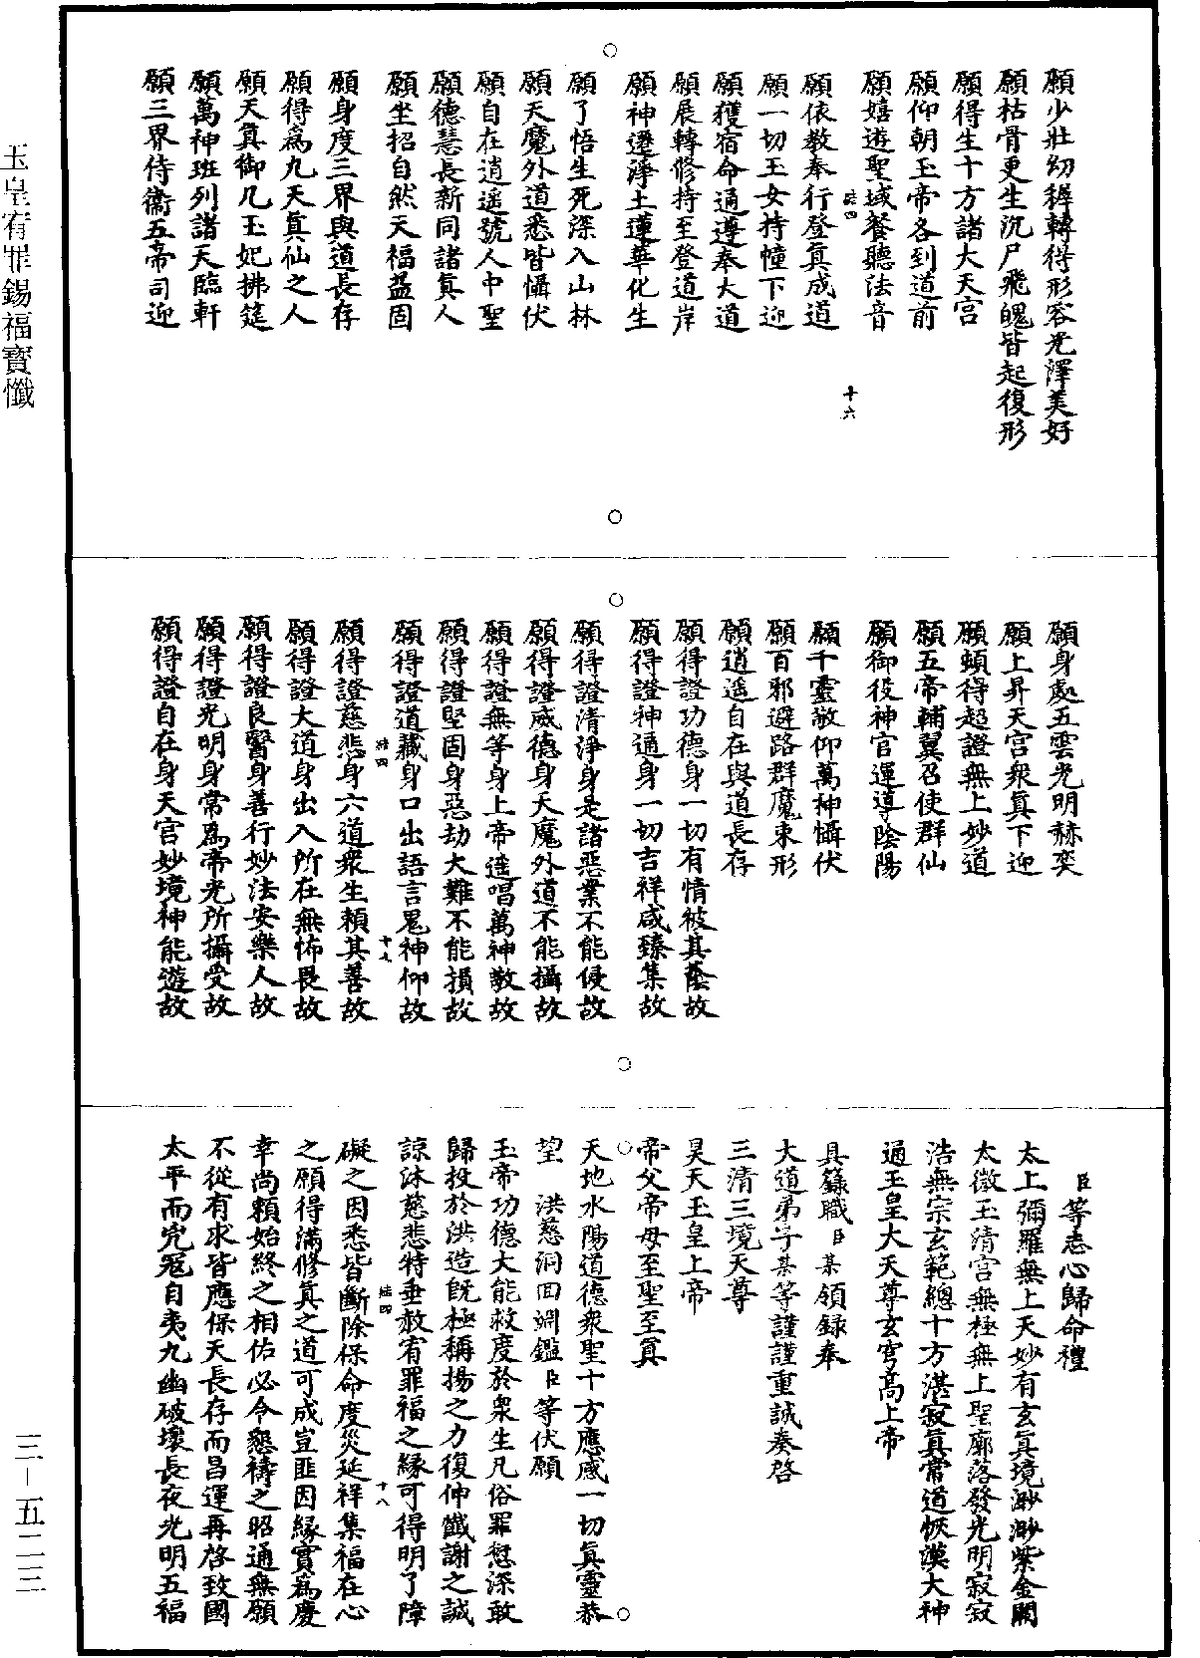 願少壯幼稺轉得形容光澤美好
願枯骨更生沉尸飛魄皆起復形
願得生十方諸大天宮
願仰朝玉帝各到道前
願嬉遊聖域餐聽法音
陆四 十六
願依教奉行登眞成道
願一切玉女持幢下迎
願獲宿命通遵奉大道
願展轉修持至登道岸
願神遷淨土蓮華化生
願了悟生死深入山林
願天魔外道悉皆懾伏
願自在逍遥號人中聖
願德慧長新同諸眞人
願坐招自然天福益固
願身度三界與道長存
願得爲九天眞仙之人
願天眞御几玉妃拂筵
願萬神班列諸天臨軒
願三界侍衞五帝司迎
願身處五雲光明赫奕
願上昇天宮衆眞下迎
願頓得超證無上妙道
願五帝輔翼召使群仙
願御役神官運導陰陽
願千靈敬仰萬神懾伏
願百邪避路群魔束形
願逍遥自在與道長存
願得證功德身一切有情彼其蔭故
願得證神通身一切吉祥咸臻集故
願得證清淨身是諸惡業不能侵故
願得證威德身天魔外道不能攝故
願得證無等身上帝遥唱萬神敬故
願得證堅固身惡劫大難不能損故
願得證道藏身口出語言鬼神仰故
陆四 十七
願得證慈悲身六道衆生頼其善故
願得證大道身出入所在無怖畏故
願得證良醫身善行妙法安樂人故
願得證光明身常爲帝光所攝受故
願得證自在身天宮妙境神能遊故
臣等志心歸命禮
太上彌羅無上天妙有玄眞境渺渺紫金闕
太微玉清宮無極無上聖廓落發光明寂寂
浩無宗玄範總十方湛寂眞常道恢漠大神
通玉皇大天尊玄穹高上帝
具籙職臣某領録奉
大道弟子某等謹謹重誠奏啓
三清三境天尊
昊天玉皇上帝
帝父帝母至聖至眞
天地水陽道德衆聖十方應感一切眞靈恭
望 洪慈洞回淵鑑臣等伏願
玉帝功德大能救度於衆生凡俗罪愆深敢
歸投於洪造旣極稱揚之力復伸懺謝之誠
諒沐慈悲特垂赦宥罪福之縁可得明了障
陆四 十八
礙之因悉皆斷除保命度災延祥集福在心
之願得滿修眞之道可成豈匪因縁實爲慶
幸尚頼始終之相佑必令懇禱之昭通無願
不從有求皆應保天長存而昌運再啓致國
太平而兇寇自夷九幽破壞長夜光明五福
玉皇宥罪錫福寶懺
三－五二三